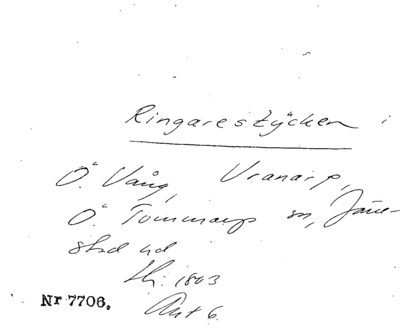 Ringarestycken i
Ö. Vång, Vranarp,
Ö. Tommarp sn, Järre-
stad hd
Nr 7706. Akt 6.